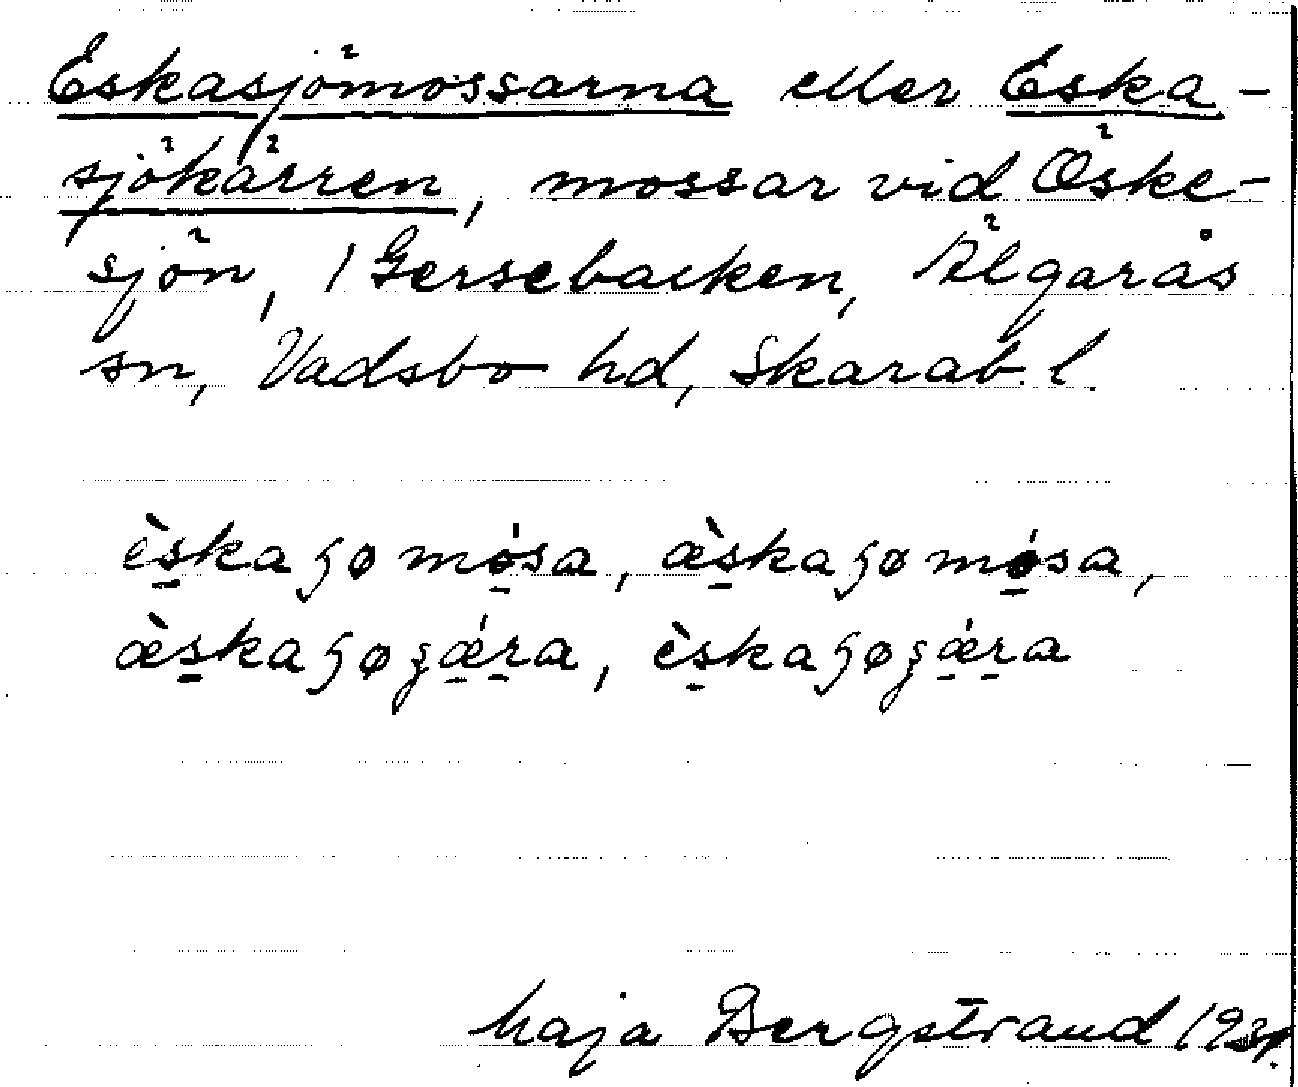 Eskasjömossarna eller Eska-
sjökärren, mossar vid Öske-
sjön, 1 Gersebacken, Älgarås
sn, Vadsbo hd, Skarab. l.
èska ɧø mósa, æ̀ska ɧø mósa,
æ̀ska ɧø ʒǽra, èska ɧø ʒǽra
Maja Bergstrand